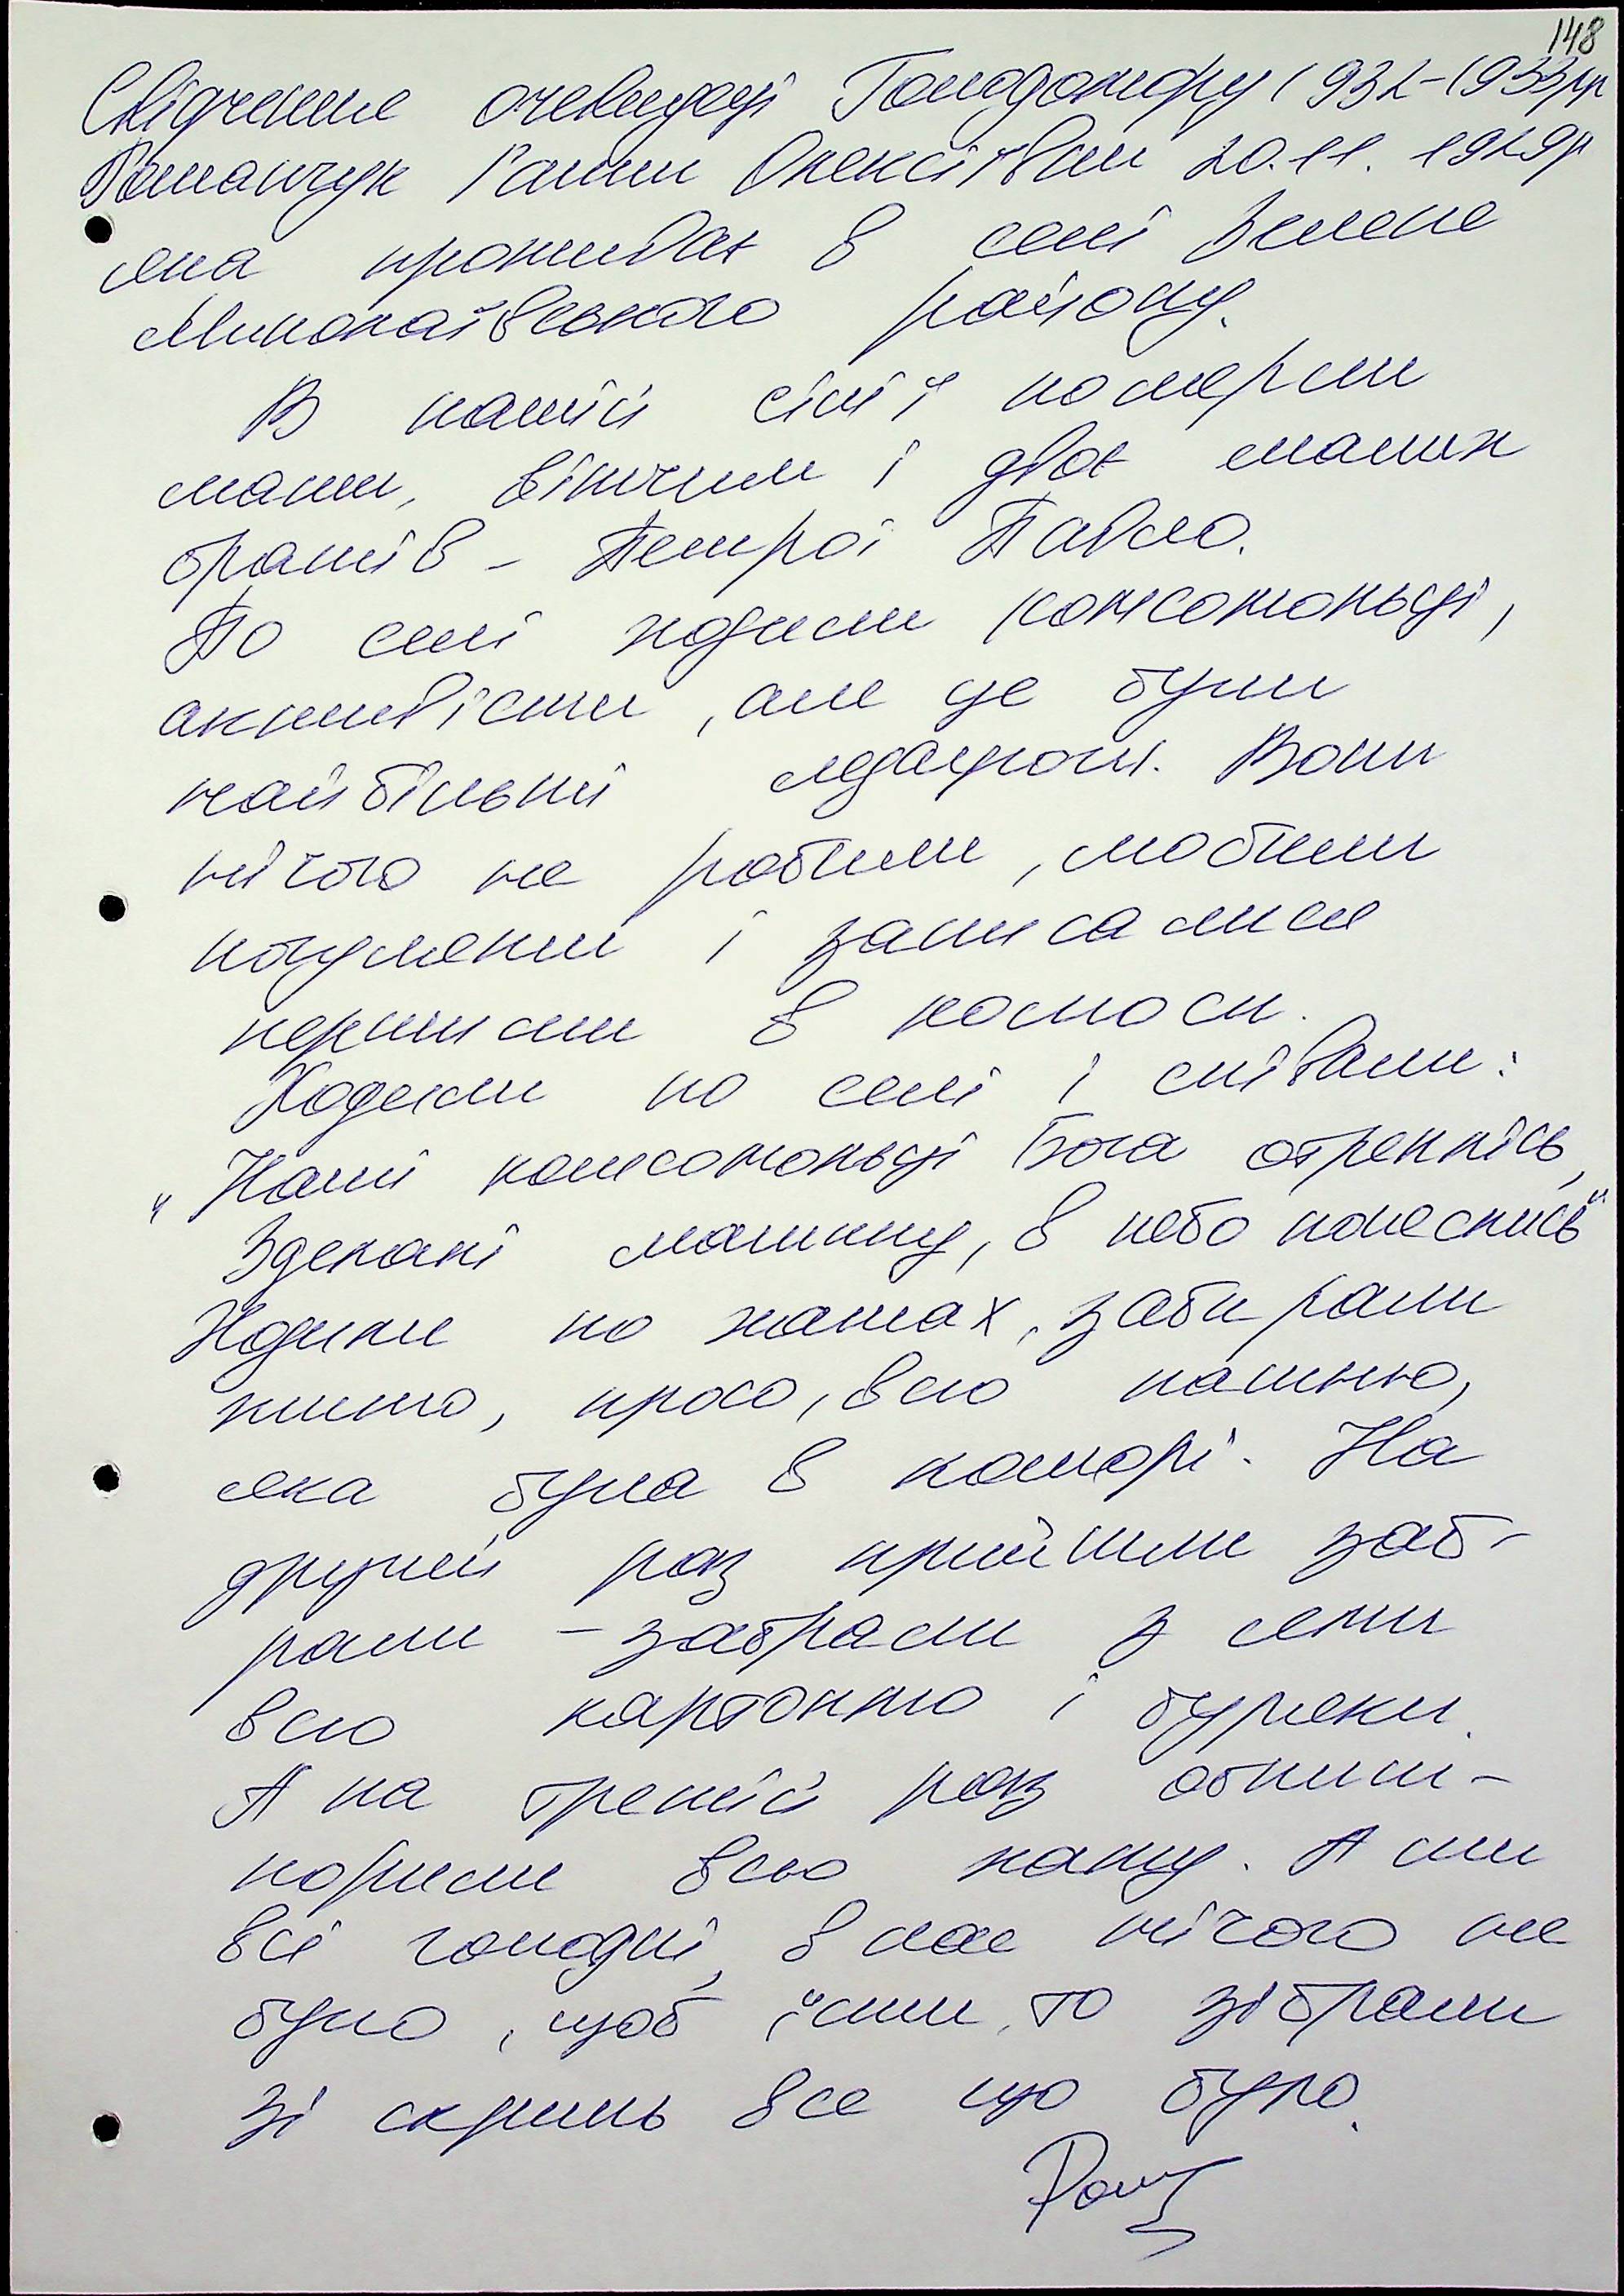 148
Свідчення очевидці Голодомору 1932-1933рр
Романчук Ганни Олексіївни 20.11.1929р
яка проживає в селі Зелене
Миколаївського району.
В нашій сім'ї померли
мати, вітчим і двоє малих
братів - Петро і Павло.
По селі ходили комсомольці,
активісти, але це були
найбільші ледацюги. Вони
нічого не робили, любили
погуляти і записалися
першими в колгосп.
Ходили по селі і співали:
"Наші комсомольці Бога отреклісь,
Зделалі машину, в небо понеслись"
Ходили по хатах, забирали
жито, просо, всю пашню,
яка була в коморі. На
другий раз прийшли заб-
рали - забрали з ями
всю картоплю і буряки.
А на третій раз обшпи-
порили всю хату. А ми
всі голодні, в нас нічого не
було, щоб їсти, то зібрали
зі скринь все що було.